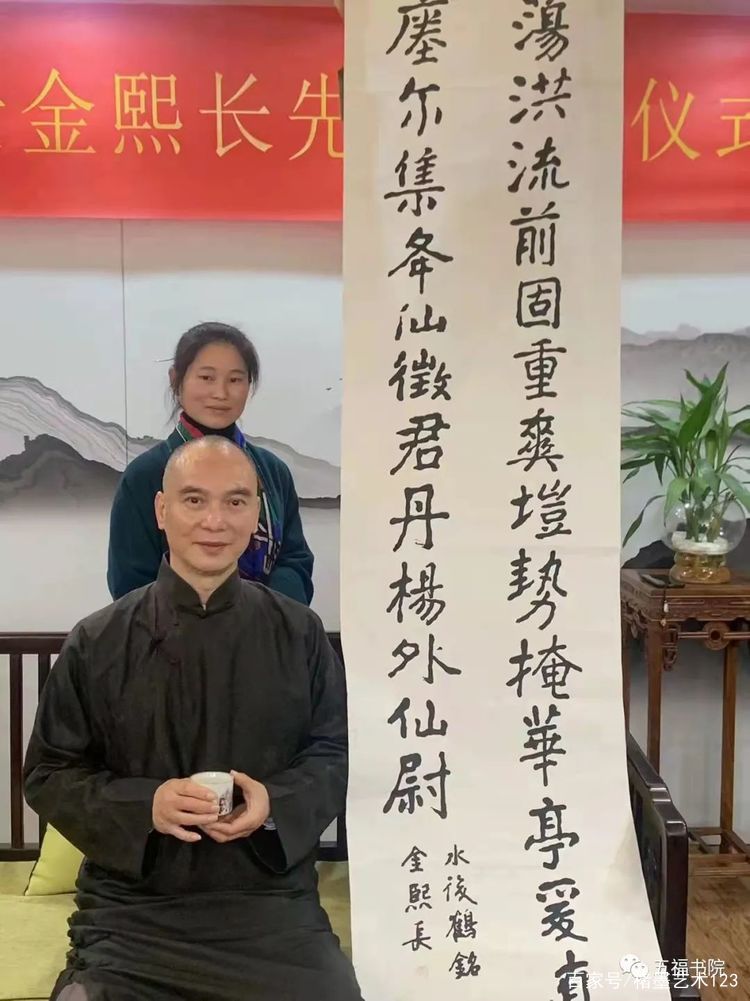 金熙长先 仪式
蕩洪流前固重爽塏勢掩華亭爰
瘞尔集夅仙徵君丹楊外仙尉
水後鶴銘
金熙長
五福书院
百家号/楮墨艺术123